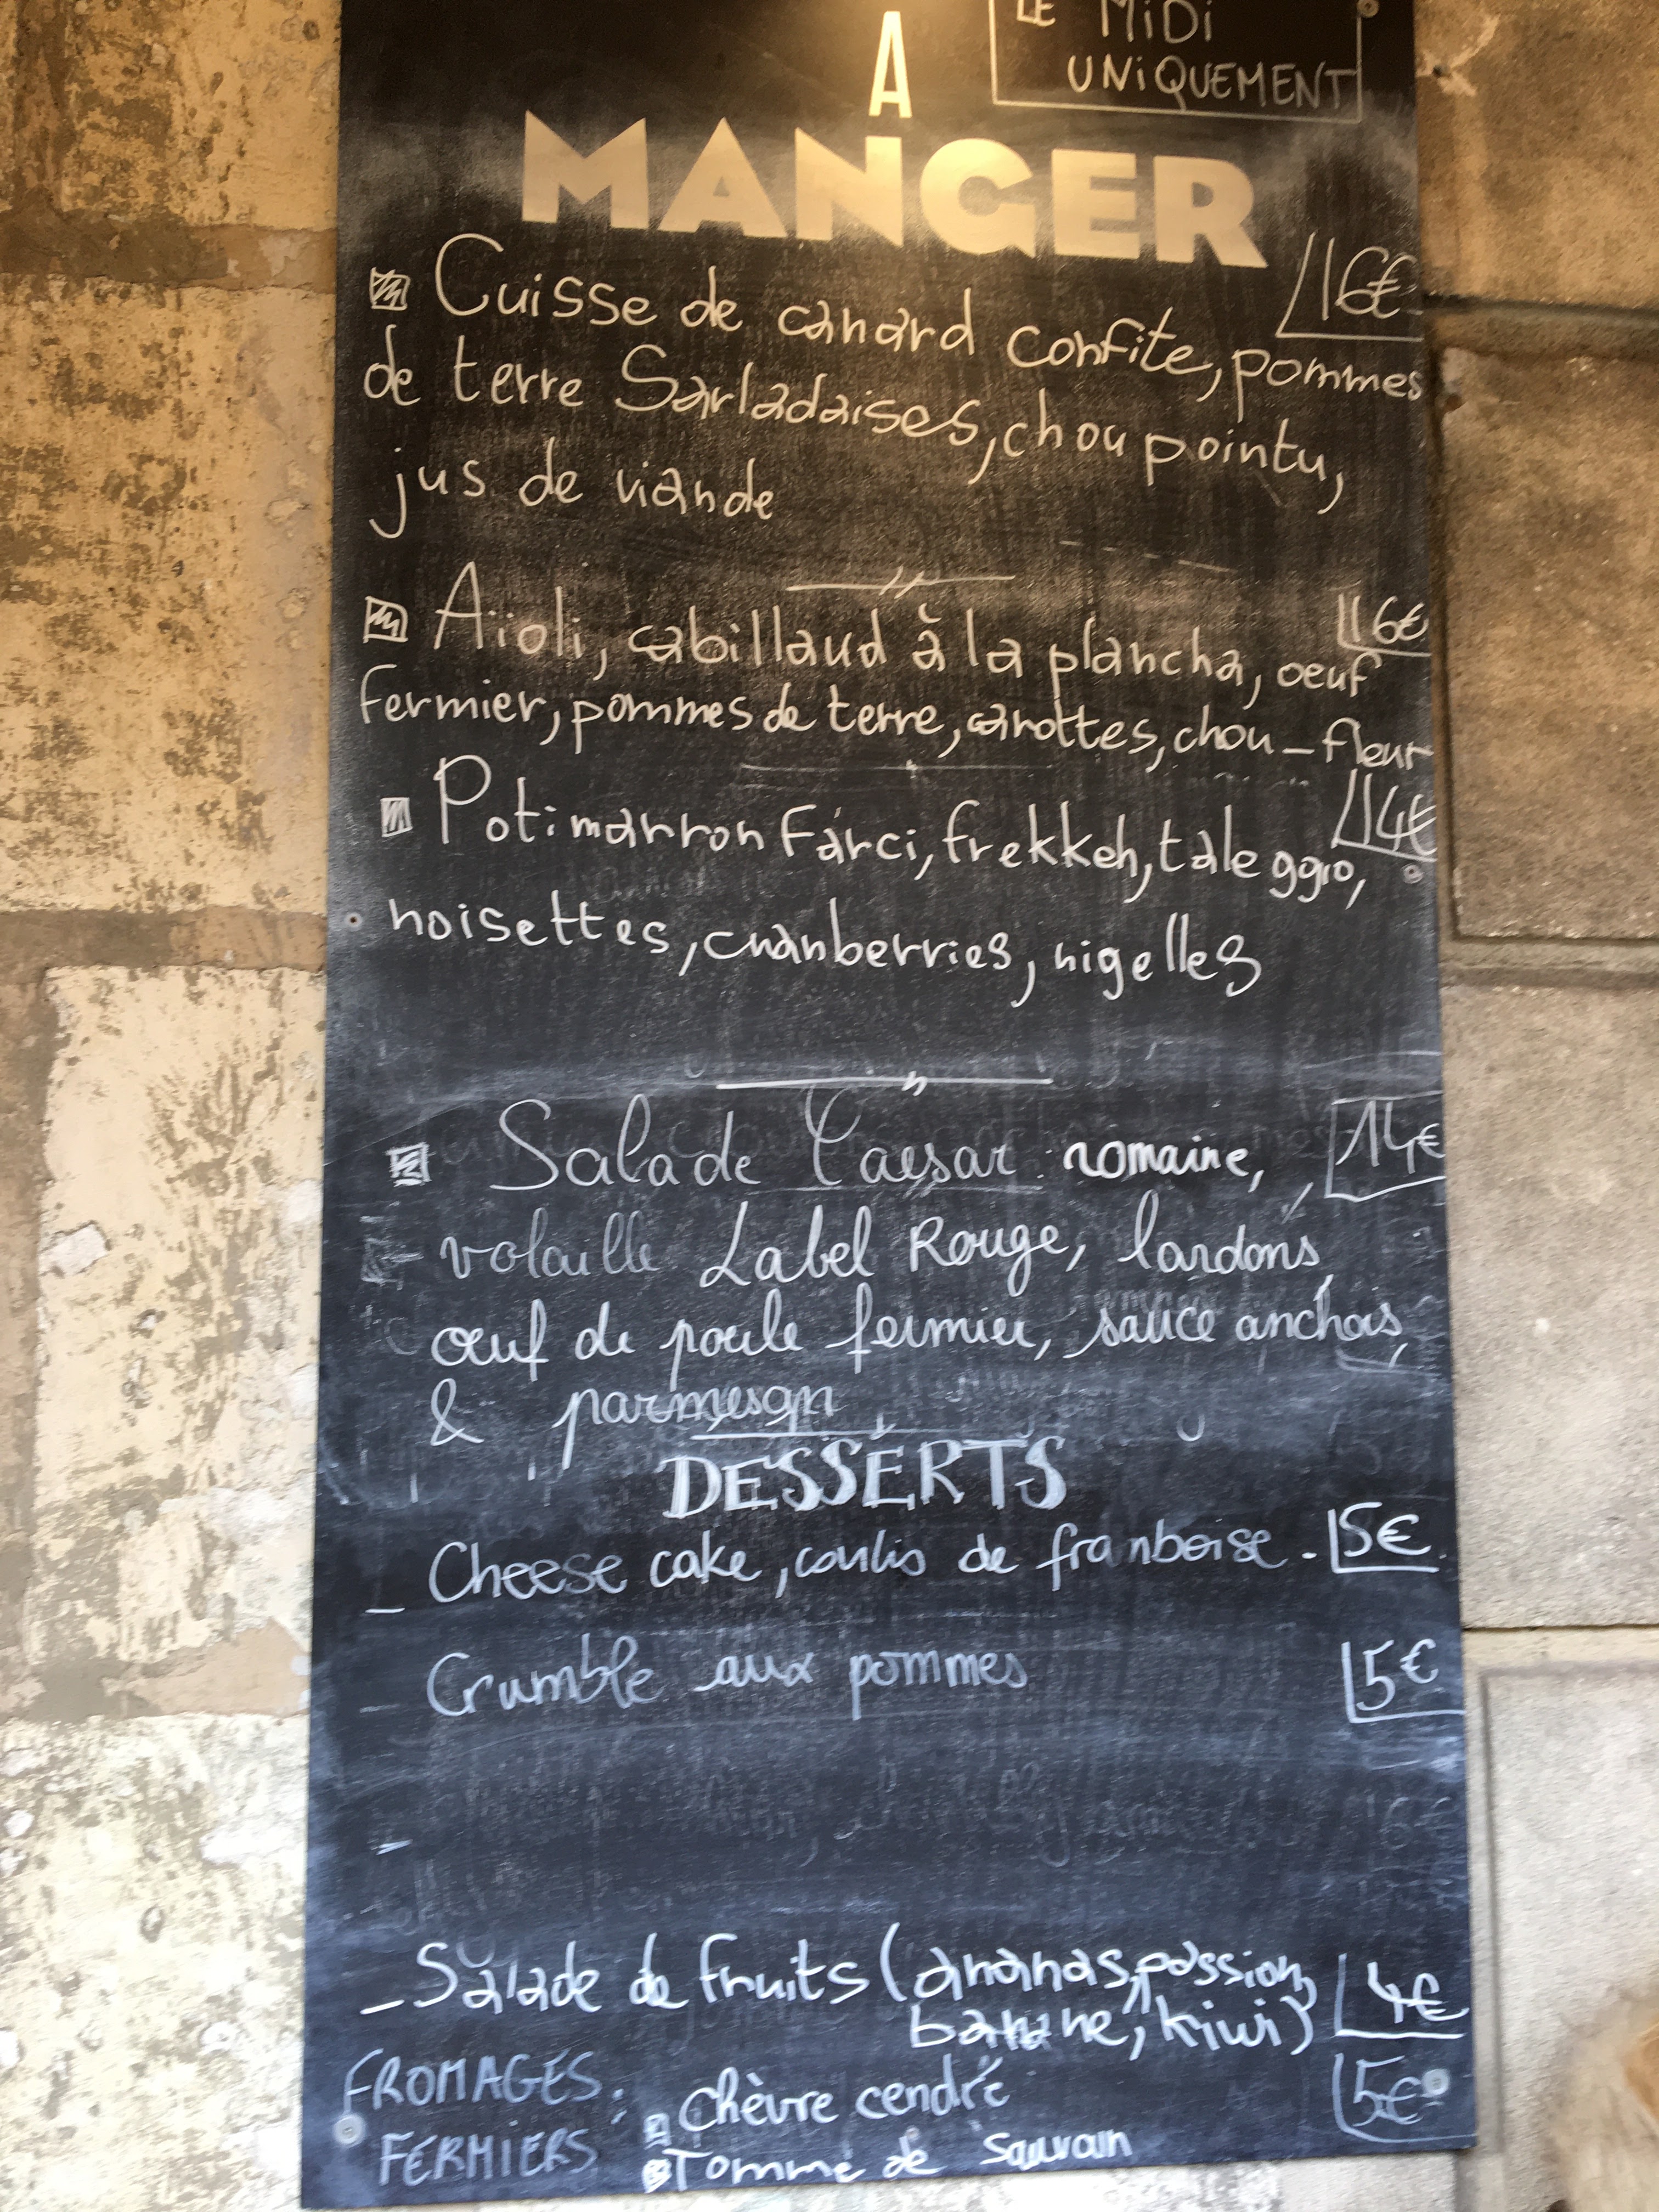 LE MiDi
UNiQUEMENT
A
MANGER
Cuisse de canard confite, pommes
16€
de terre Sarladaises, chou pointu,
jus de viande
Aïoli, cabillaud à la plancha, oeuf
16€
fermier, pommes de terre, carottes, chou-fleur
Potimarron Farci, frekkeh, taleggio,
14€
noisettes, cranberries, nigelles
Salade Caesar: romaine,
14€
volaille Label Rouge, lardons,
œuf de poule fermier, sauce anchois,
& parmesan
DESSERTS
_ Cheese cake, coulis de framboise. 5€
_ Crumble aux pommes 5€
_ Salade de fruits (ananas, passion, 4€
banane, kiwi)
FROMAGES: Chèvre cendré 5€
FERMIERS Tomme de Sauvain